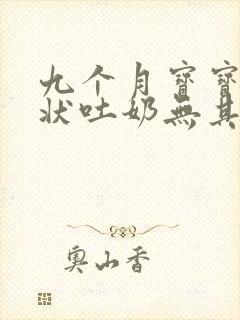 九个月寶寶
狀吐奶無其
奧山香